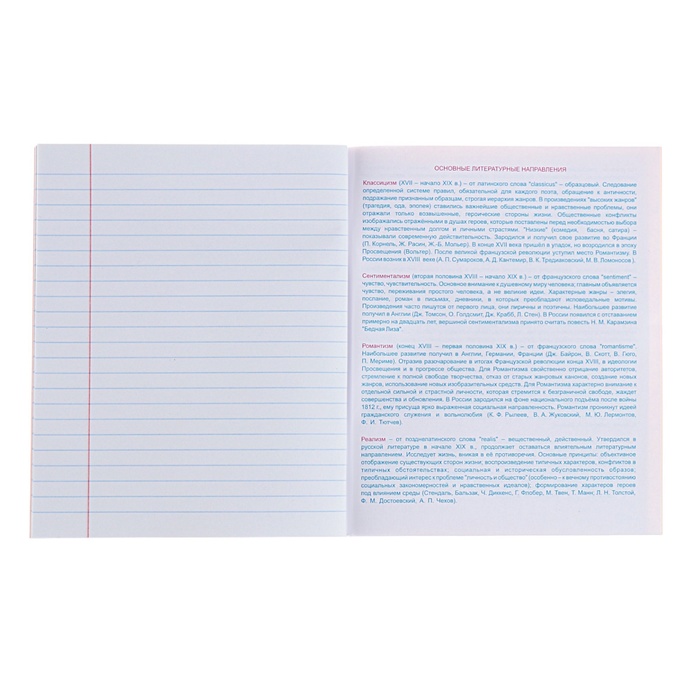 ОСНОВНЫЕ ЛИТЕРАТУРНЫЕ НАПРАВЛЕНИЯ
Классицизм (XVII – начало XIX в.) – от латинского слова "classicus" – образцовый. Следование
определенной системе правил, обязательной для каждого поэта, обращение к античности,
подражание признанным образцам, строгая иерархия жанров. В произведениях "высоких жанров"
(трагедия, ода, эпопея) ставились важнейшие общественные и нравственные проблемы, они
отражали только возвышенные, героические стороны жизни. Общественные конфликты
изображались отражёнными в душах героев, которые поставлены перед необходимостью выбора
между нравственным долгом и личными страстями. "Низкие" (комедия, басня, сатира) –
показывали современную действительность. Зародился и получил свое развитие во Франции
(П. Корнель, Ж. Расин, Ж.-Б. Мольер). В конце XVII века пришёл в упадок, но возродился в эпоху
Просвещения (Вольтер). После великой французской революции уступил место Романтизму. В
России возник в XVIII веке (А. П. Сумароков, А. Д. Кантемир, В. К. Тредиаковский, М. В. Ломоносов).
Сентиментализм (вторая половина XVIII – начало XIX в.) – от французского слова "sentiment" –
чувство, чувствительность. Основное внимание к душевному миру человека; главным объявляется
чувство, переживания простого человека, а не великие идеи. Характерные жанры – элегия,
послание, роман в письмах, дневники, в которых преобладают исповедальные мотивы.
Произведения часто пишутся от первого лица, они лиричны и поэтичны. Наибольшее развитие
получил в Англии (Дж. Томсон, О. Голдсмит, Дж. Крабб, Л. Стен). В России появился с отставанием
примерно на двадцать лет, вершиной сентиментализма принято считать повесть Н. М. Карамзина
"Бедная Лиза".
Романтизм (конец XVIII – первая половина XIX в.) – от французского слова "romantisme".
Наибольшее развитие получил в Англии, Германии, Франции (Дж. Байрон, В. Скотт, В. Гюго,
П. Мериме). Отразив разочарование в итогах Французской революции конца XVIII, в идеологии
Просвещения и в прогрессе общества. Для Романтизма свойственно отрицание авторитетов,
стремление к полной свободе творчества, отказ от старых жанровых канонов, создание новых
жанров, использование новых изобразительных средств. Для Романтизма характерно внимание к
отдельной сильной и страстной личности, которая стремится к безграничной свободе, жаждет
совершенства и обновления. В России зародился на фоне национального подъёма после войны
1812 г., ему присуща ярко выраженная социальная направленность. Романтизм проникнут идеей
гражданского служения и вольнолюбия (К. Ф. Рылеев, В. А. Жуковский, М. Ю. Лермонтов,
Ф. И. Тютчев).
Реализм – от позднелатинского слова "realis" – вещественный, действенный. Утвердился в
русской литературе в начале XIX в., продолжает оставаться влиятельным литературным
направлением. Исследует жизнь, вникая в её противоречия. Основные принципы: объективное
отображение существующих сторон жизни; воспроизведение типичных характеров, конфликтов в
типичных обстоятельствах; социальная и историческая обусловленность образов,
преобладающий интерес к проблеме "личность и общество" (особенно – к вечному противостоянию
социальных закономерностей и нравственных идеалов); формирование характеров героев
под влиянием среды (Стендаль, Бальзак, Ч. Диккенс, Г. Флобер, М. Твен, Т. Манн, Л. Н. Толстой,
Ф. М. Достоевский, А. П. Чехов).